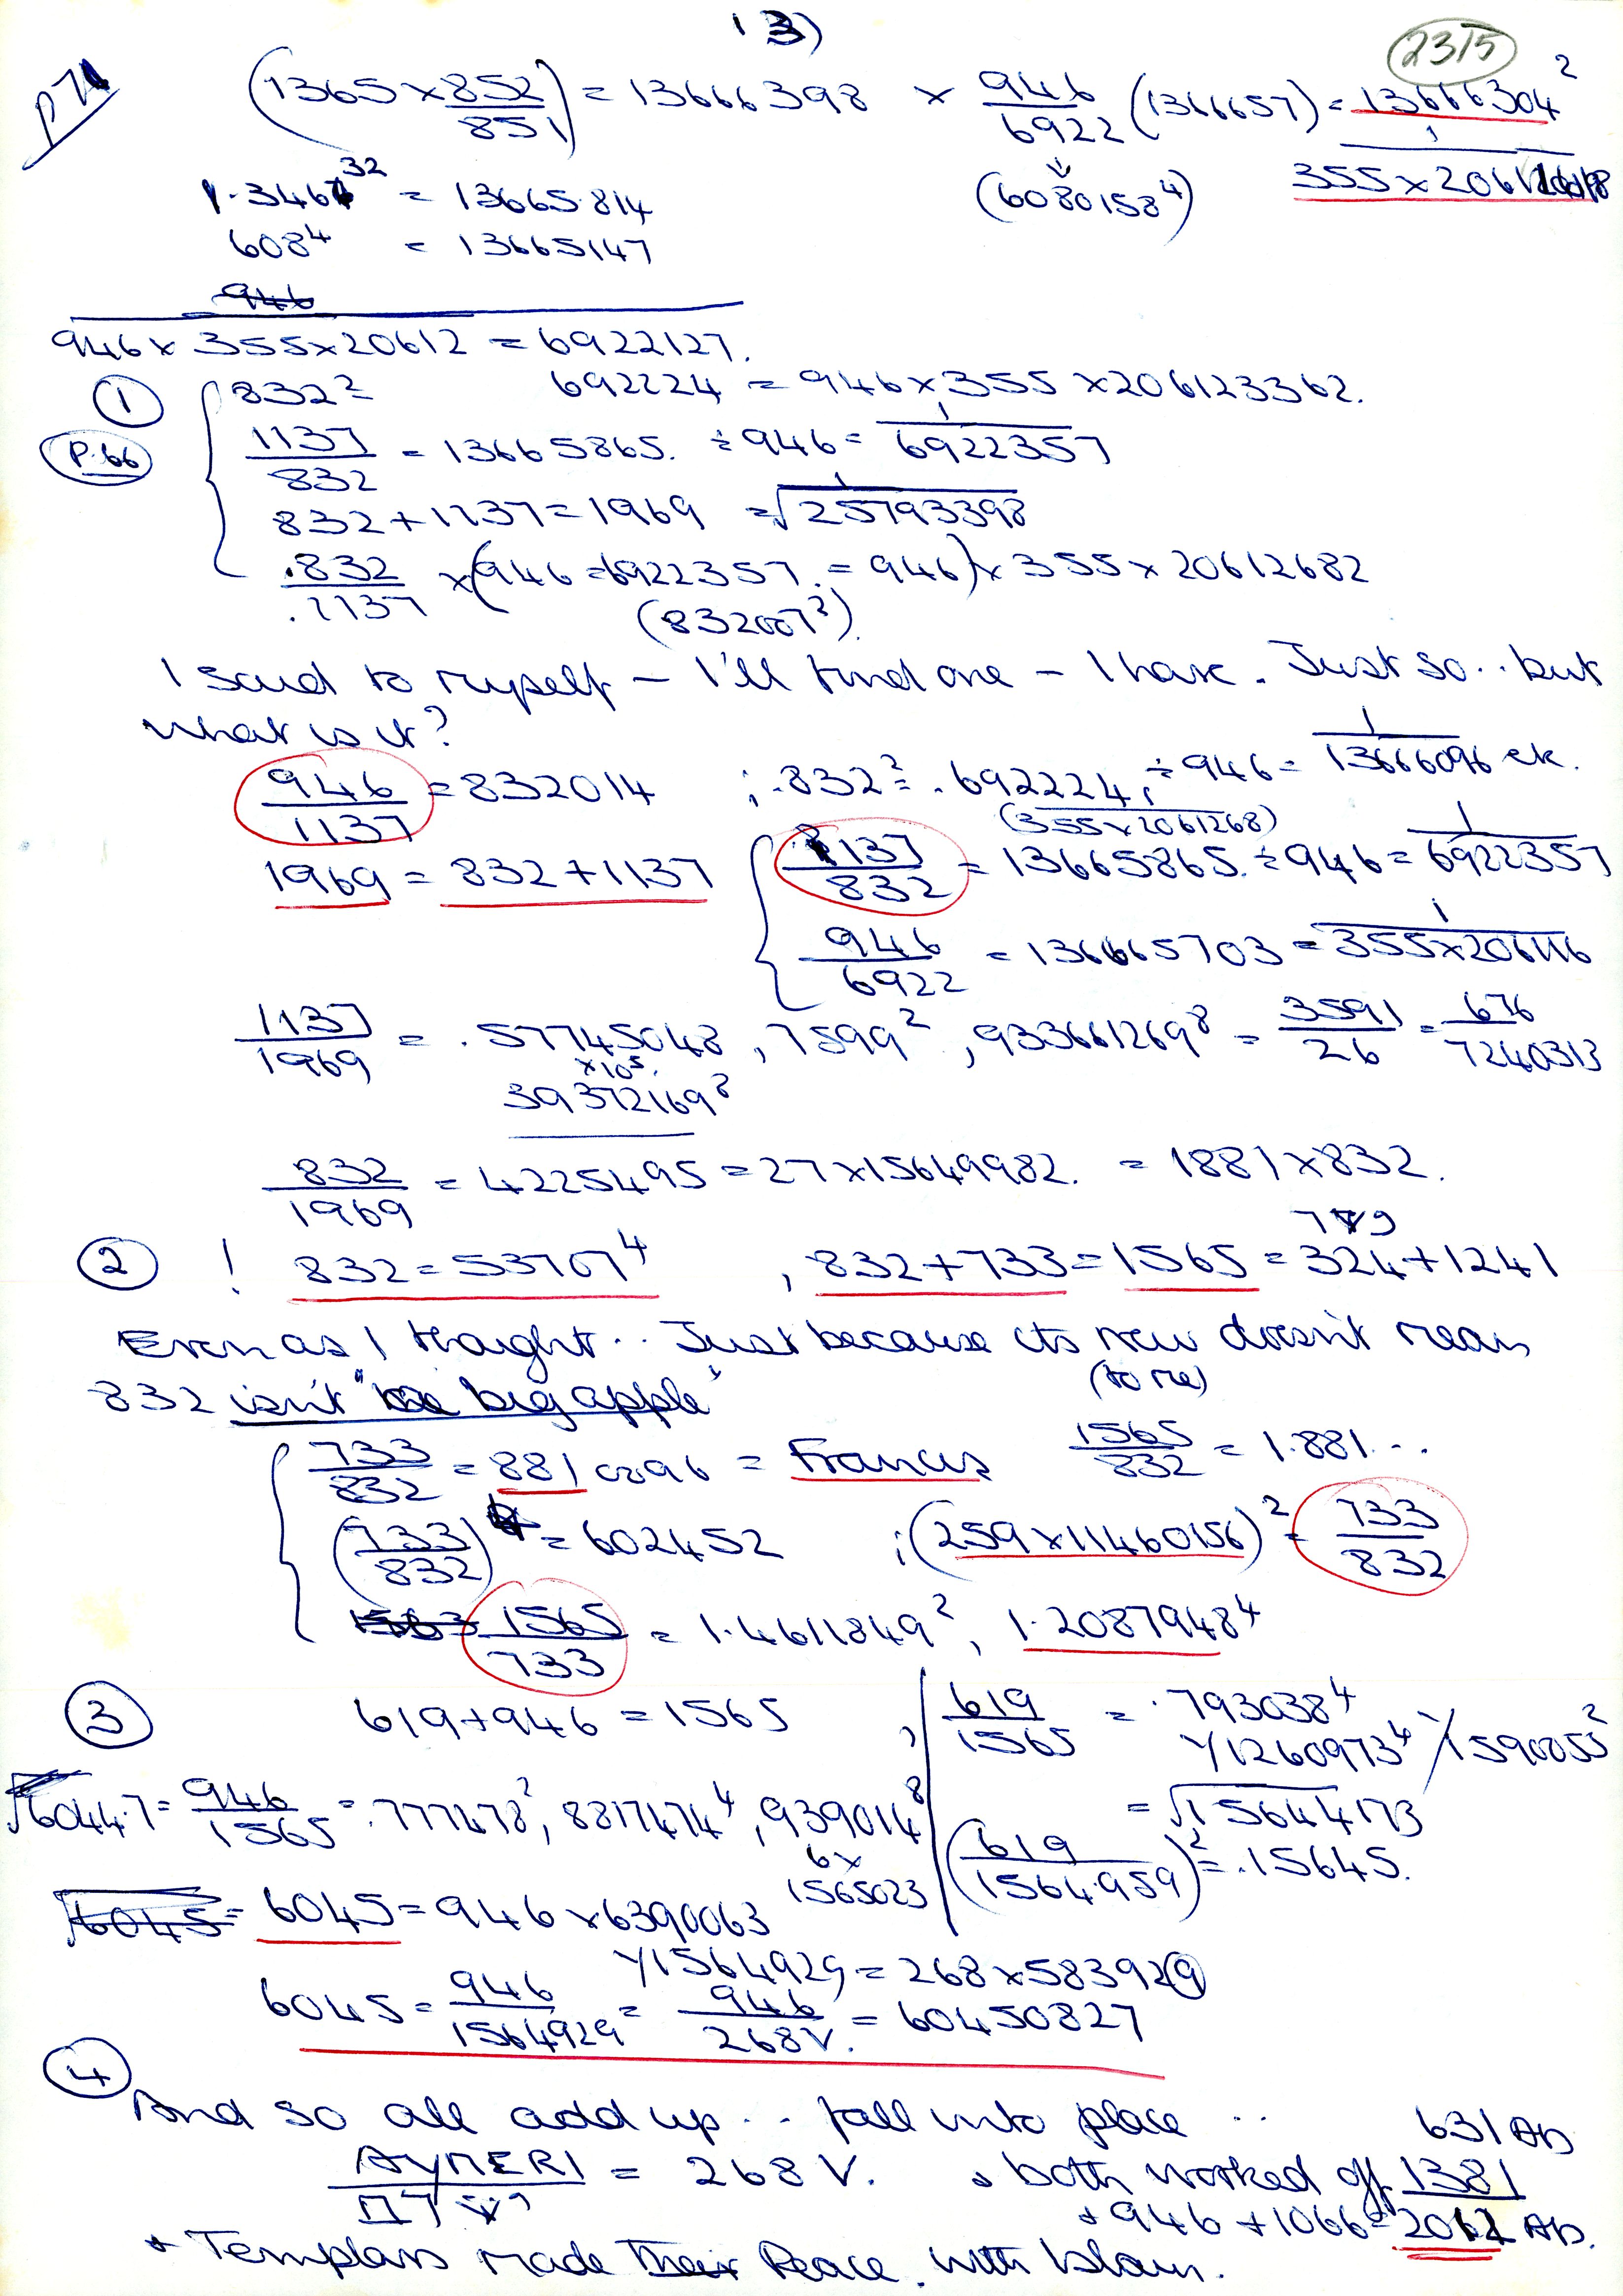 13)
2315
p71
(1365 × 852/851) = 13666398 × 946/6922 (1366657) = 13666304²
(6080158⁴)
1/355×206
³² = 13665.814
608⁴ = 13665147
946
946 × 355 × 20612 = 6922127.
① 832² 692224 = 946 × 355 × 206123362.
P.66
1137/832 = 13665865. ÷ 946 = 1/6922357
832 + 1137 = 1969 = √1/25793398
.832/.1137 × (946 = 6922357. = 946) × 355 × 20612682
(832007²)
I said to myself – I'll find one – I have. Just so.. but
what is it?
946/1137 = 832014 ; .832² = .692224, ÷ 946 = 1/13666096 etc.
1/(355×2061268)
1969 = 832 + 1137
1137/832 = 13665865. ÷ 946 = 1/6922357
946/6922 = 136665703 = 1/355×206116
1137/1969 = .57745048, 7599², 933661269⁸ = 3591/26 = 676/7240313
×10⁵.
39372169⁸
832/1969 = 4225495 = 27 × 15649982. = 1881 × 832.
② ! 832 = 53707⁴ , 832 + 733 = 1565 = 324 + 1241
Even as I thought.. Just because its new doesn't mean
(to me)
832 isn't "the big apple"
733/832 = 881 0096 = Francis 1565/832 = 1.881...
(733/832)⁴ = 602452 ; (259 × 11460156)² = 733/832
1565/733 = 1.4611849², 1.2087948⁴
③ 619 + 946 = 1565 , 619/1565 = .793038⁴
Y1260973⁴ Y1590055²
√6044.7 = 946/1565 = .777478², 8817474⁴, 939014⁸
= √15644173
6×
1565023
(619/1564.959)² = .15645.
√6045 = 6045 = 946 × 6390063
Y1564929 = 268 × 583929
6045 = 946/1564929 = 946/268V. = 60450827
④
And so all add up... fall into place ..
631 AD
AYMERI = 268 V. . both worked off 1381
+ 946 + 1066 = 2012 AD.
+ Templars made Their Peace. with Islam.